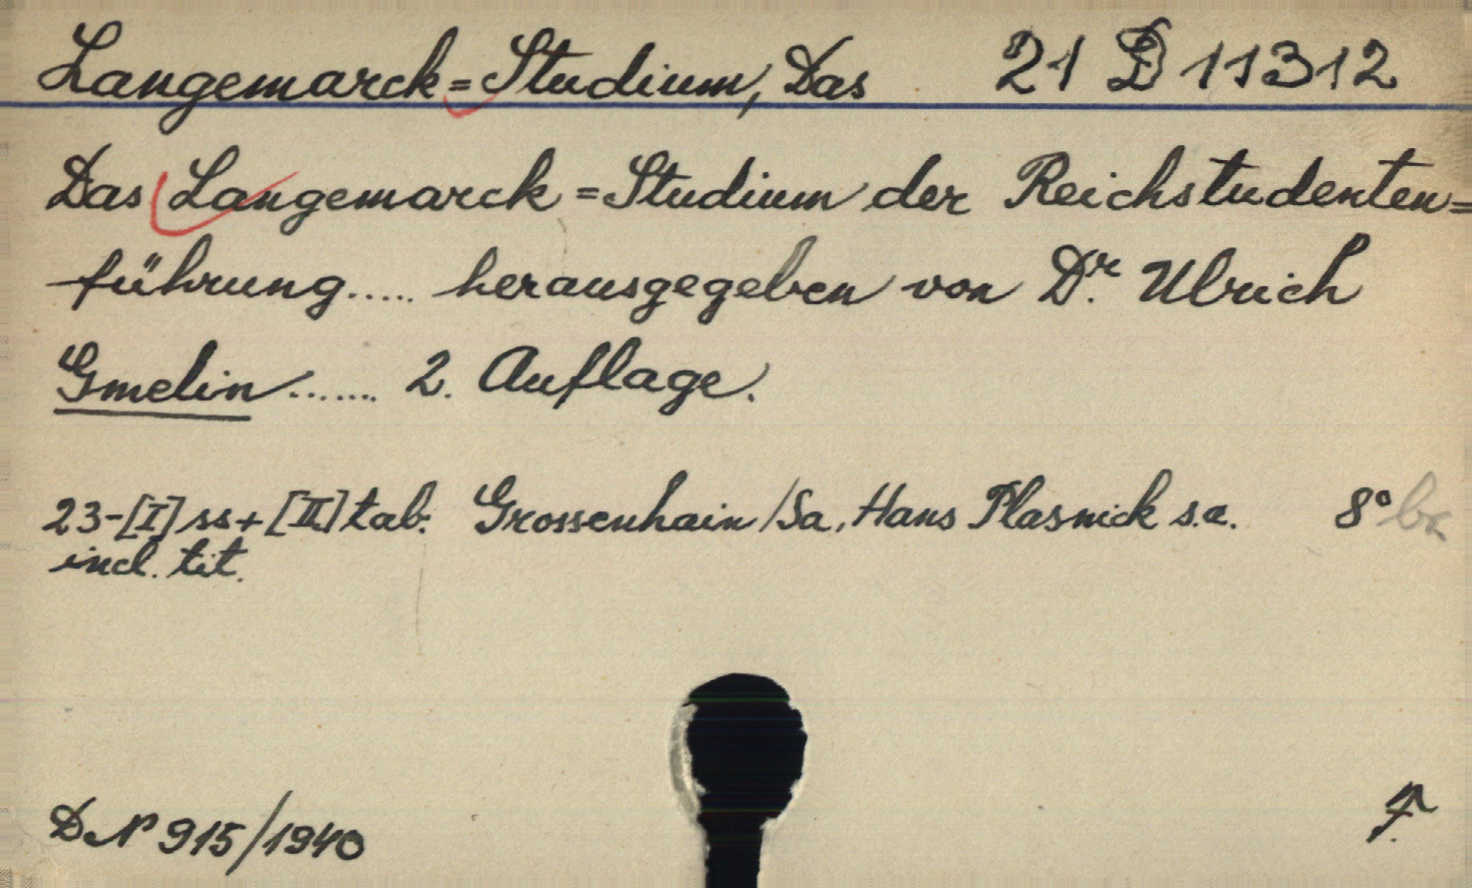 Langemarck=Studium, Das 21 D 11312
Das Langemarck=Studium der Reichstudenten=
führung..... herausgegeben von Dr. Ulrich
Gmelin...... 2. Auflage.
23-[I] ss+[II] tab. Grossenhain/Sa, Hans Plasnick s.a. 8°
incl. tit.
DN 915/1940